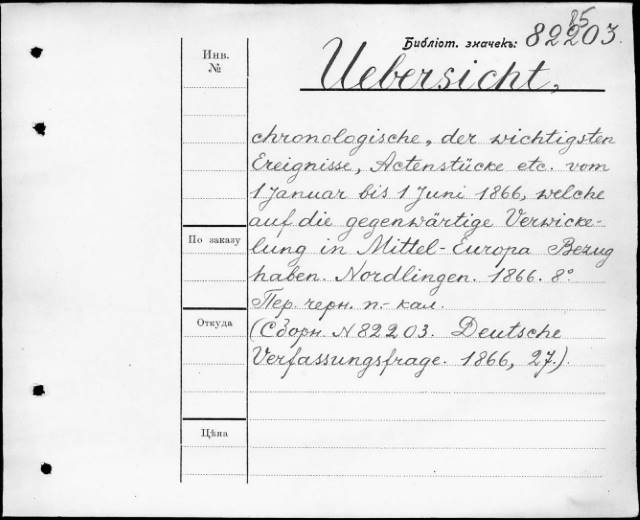 Библіот. значекъ: 82203.
85
Инв.
№
Uebersicht,
chronologische, der wichtigsten
Ereignisse, Actenstücke etc. vom
1 Januar bis 1 Juni 1866, welche
auf die gegenwärtige Verwicke-
lung in Mittel-Europa Bezug
haben. Nordlingen. 1866. 8°
Пер. черн. п.- кал.
(Сборн. N 82203. Deutsche
Verfassungsfrage. 1866, 27.)
По заказу
Откуда
Цѣна